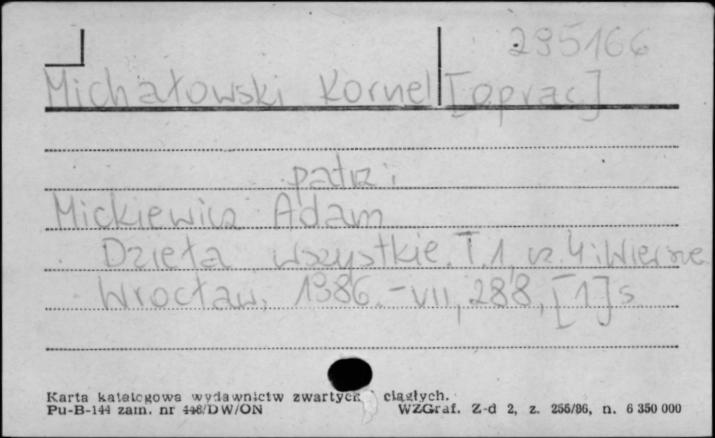 295166
Michałowski Kornel [oprac]
patrz:
Mickiewicz Adam
Dzieła wszystkie. T.1, cz. 4: Wiersze
Wrocław, 1986.-VII, 288, [1] s
Karta katalogowa wydawnictw zwartych ciągłych.
Pu-B-144 zam. nr 446/DW/ON WZGraf. Z-d 2, z. 255/86, n. 6 350 000